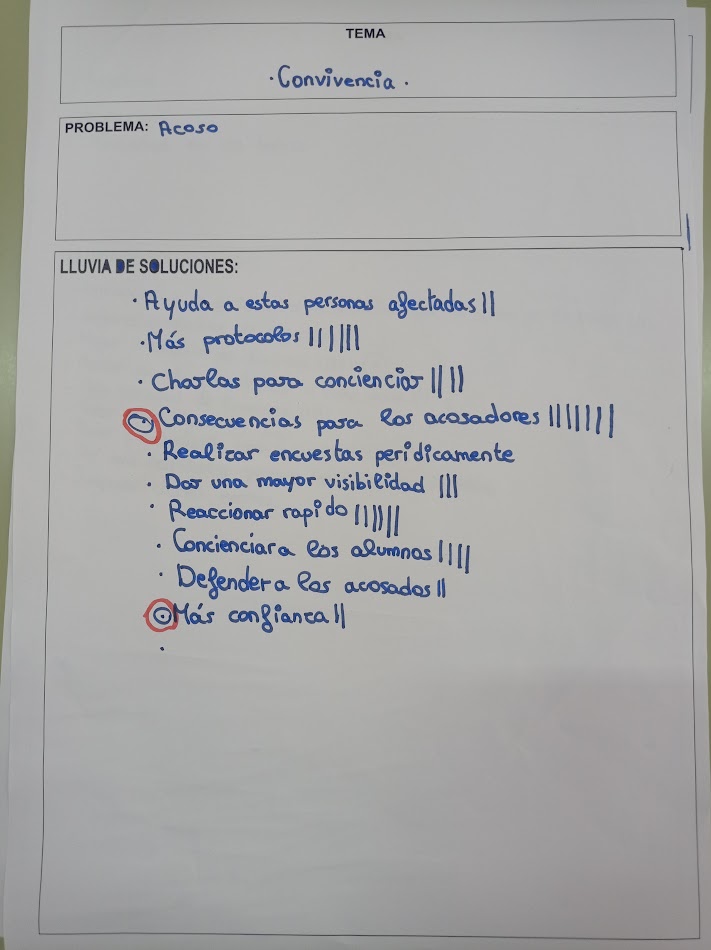 TEMA
· Convivencia ·
PROBLEMA: Acoso
LLUVIA DE SOLUCIONES:
· Ayuda a estas personas afectadas ||
· Más protocolos ||||||
· Charlas para concienciar ||||
· Consecuencias para los acosadores |||||||
· Realizar encuestas peridicamente
· Dar una mayor visibilidad |||
· Reaccionar rapido ||||||
· Concienciar a los alumnos ||||
· Defender a los acosados ||
· Más confianza ||
·